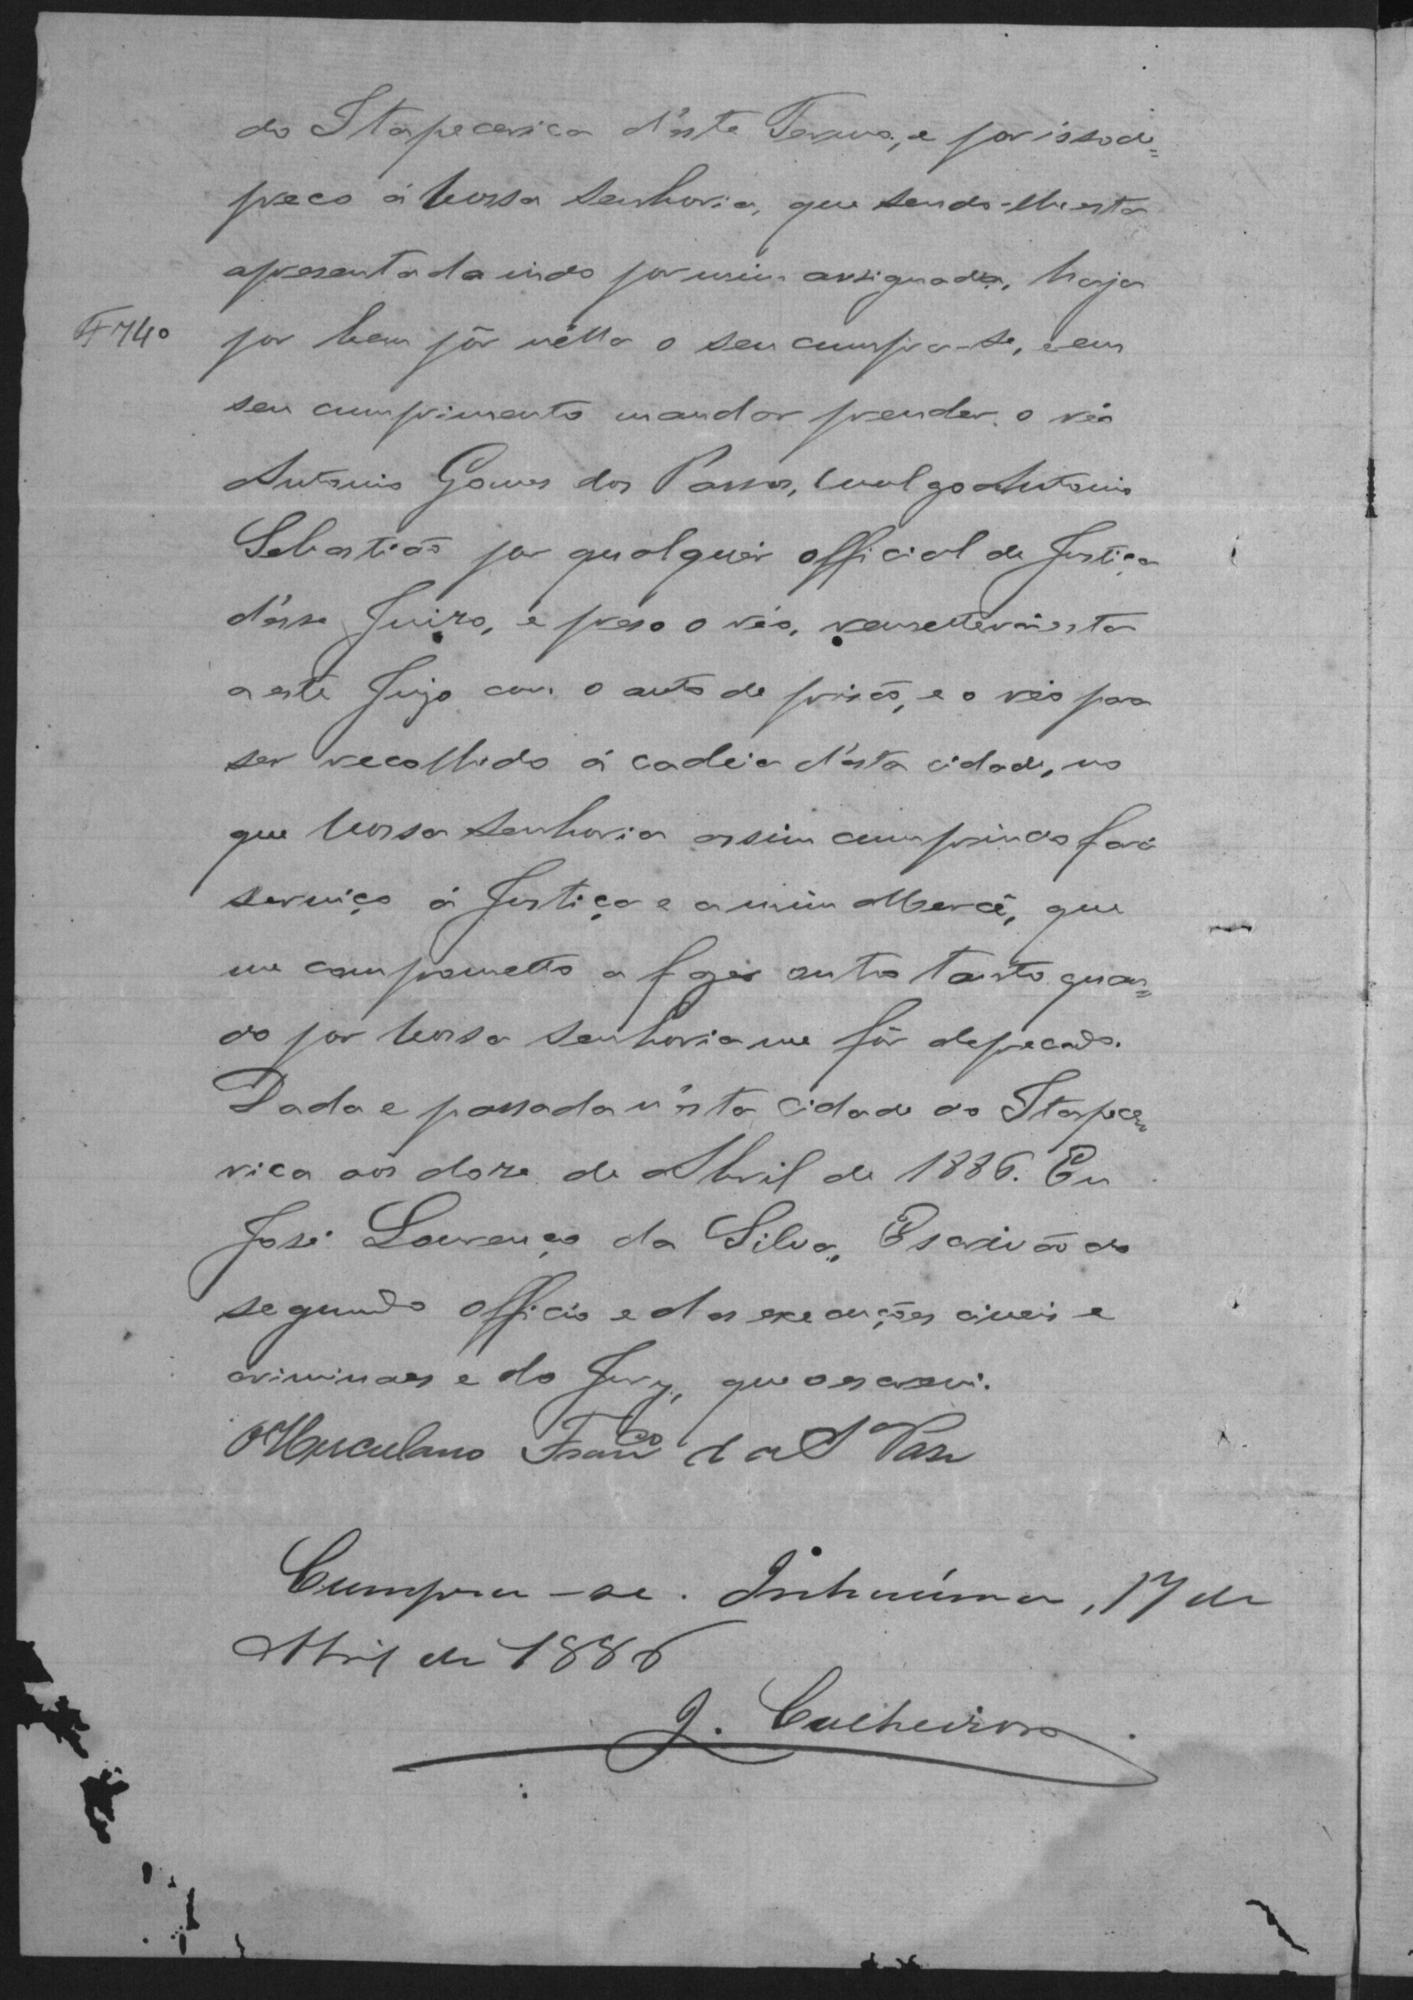 do Itapecerica d'este Termo, e por isso de=
preco á Vossa Senhoria, que sendo-lhe esta
apresentada indo por mim assignada, haja
por bem pôr nélla o seu cumpra-se, e em
F 740
seu cumprimento mandar prender o réo
Antonio Gomes dos Passos, vulgo Antonio
Sebastião por qualquer official de Justiça
d'esse Juizo, e preso o réo, remetterá esta
a este Juizo com o auto de prisão, e o réo para
ser recolhido á cadeia d'esta cidade, no
que Vossa Senhoria assim cumprindo fará
serviço á Justiça e a mim Mercê, que
me comprometto a fazer outro tanto quan=
do por Vossa Senhoria me fôr deprecado.
Dada e passada n'esta cidade do Itapece
rica aos doze de Abril de 1886. Eu
José Lourenço da Silva, Escrivão do
segundo officio e das execuções civeis e
criminaes e do Jury, que o escrevi.
Herculano Franco da S.
Cumpra-se. Inhaúma, 17 de
Abril de 1886
J. Calheiros